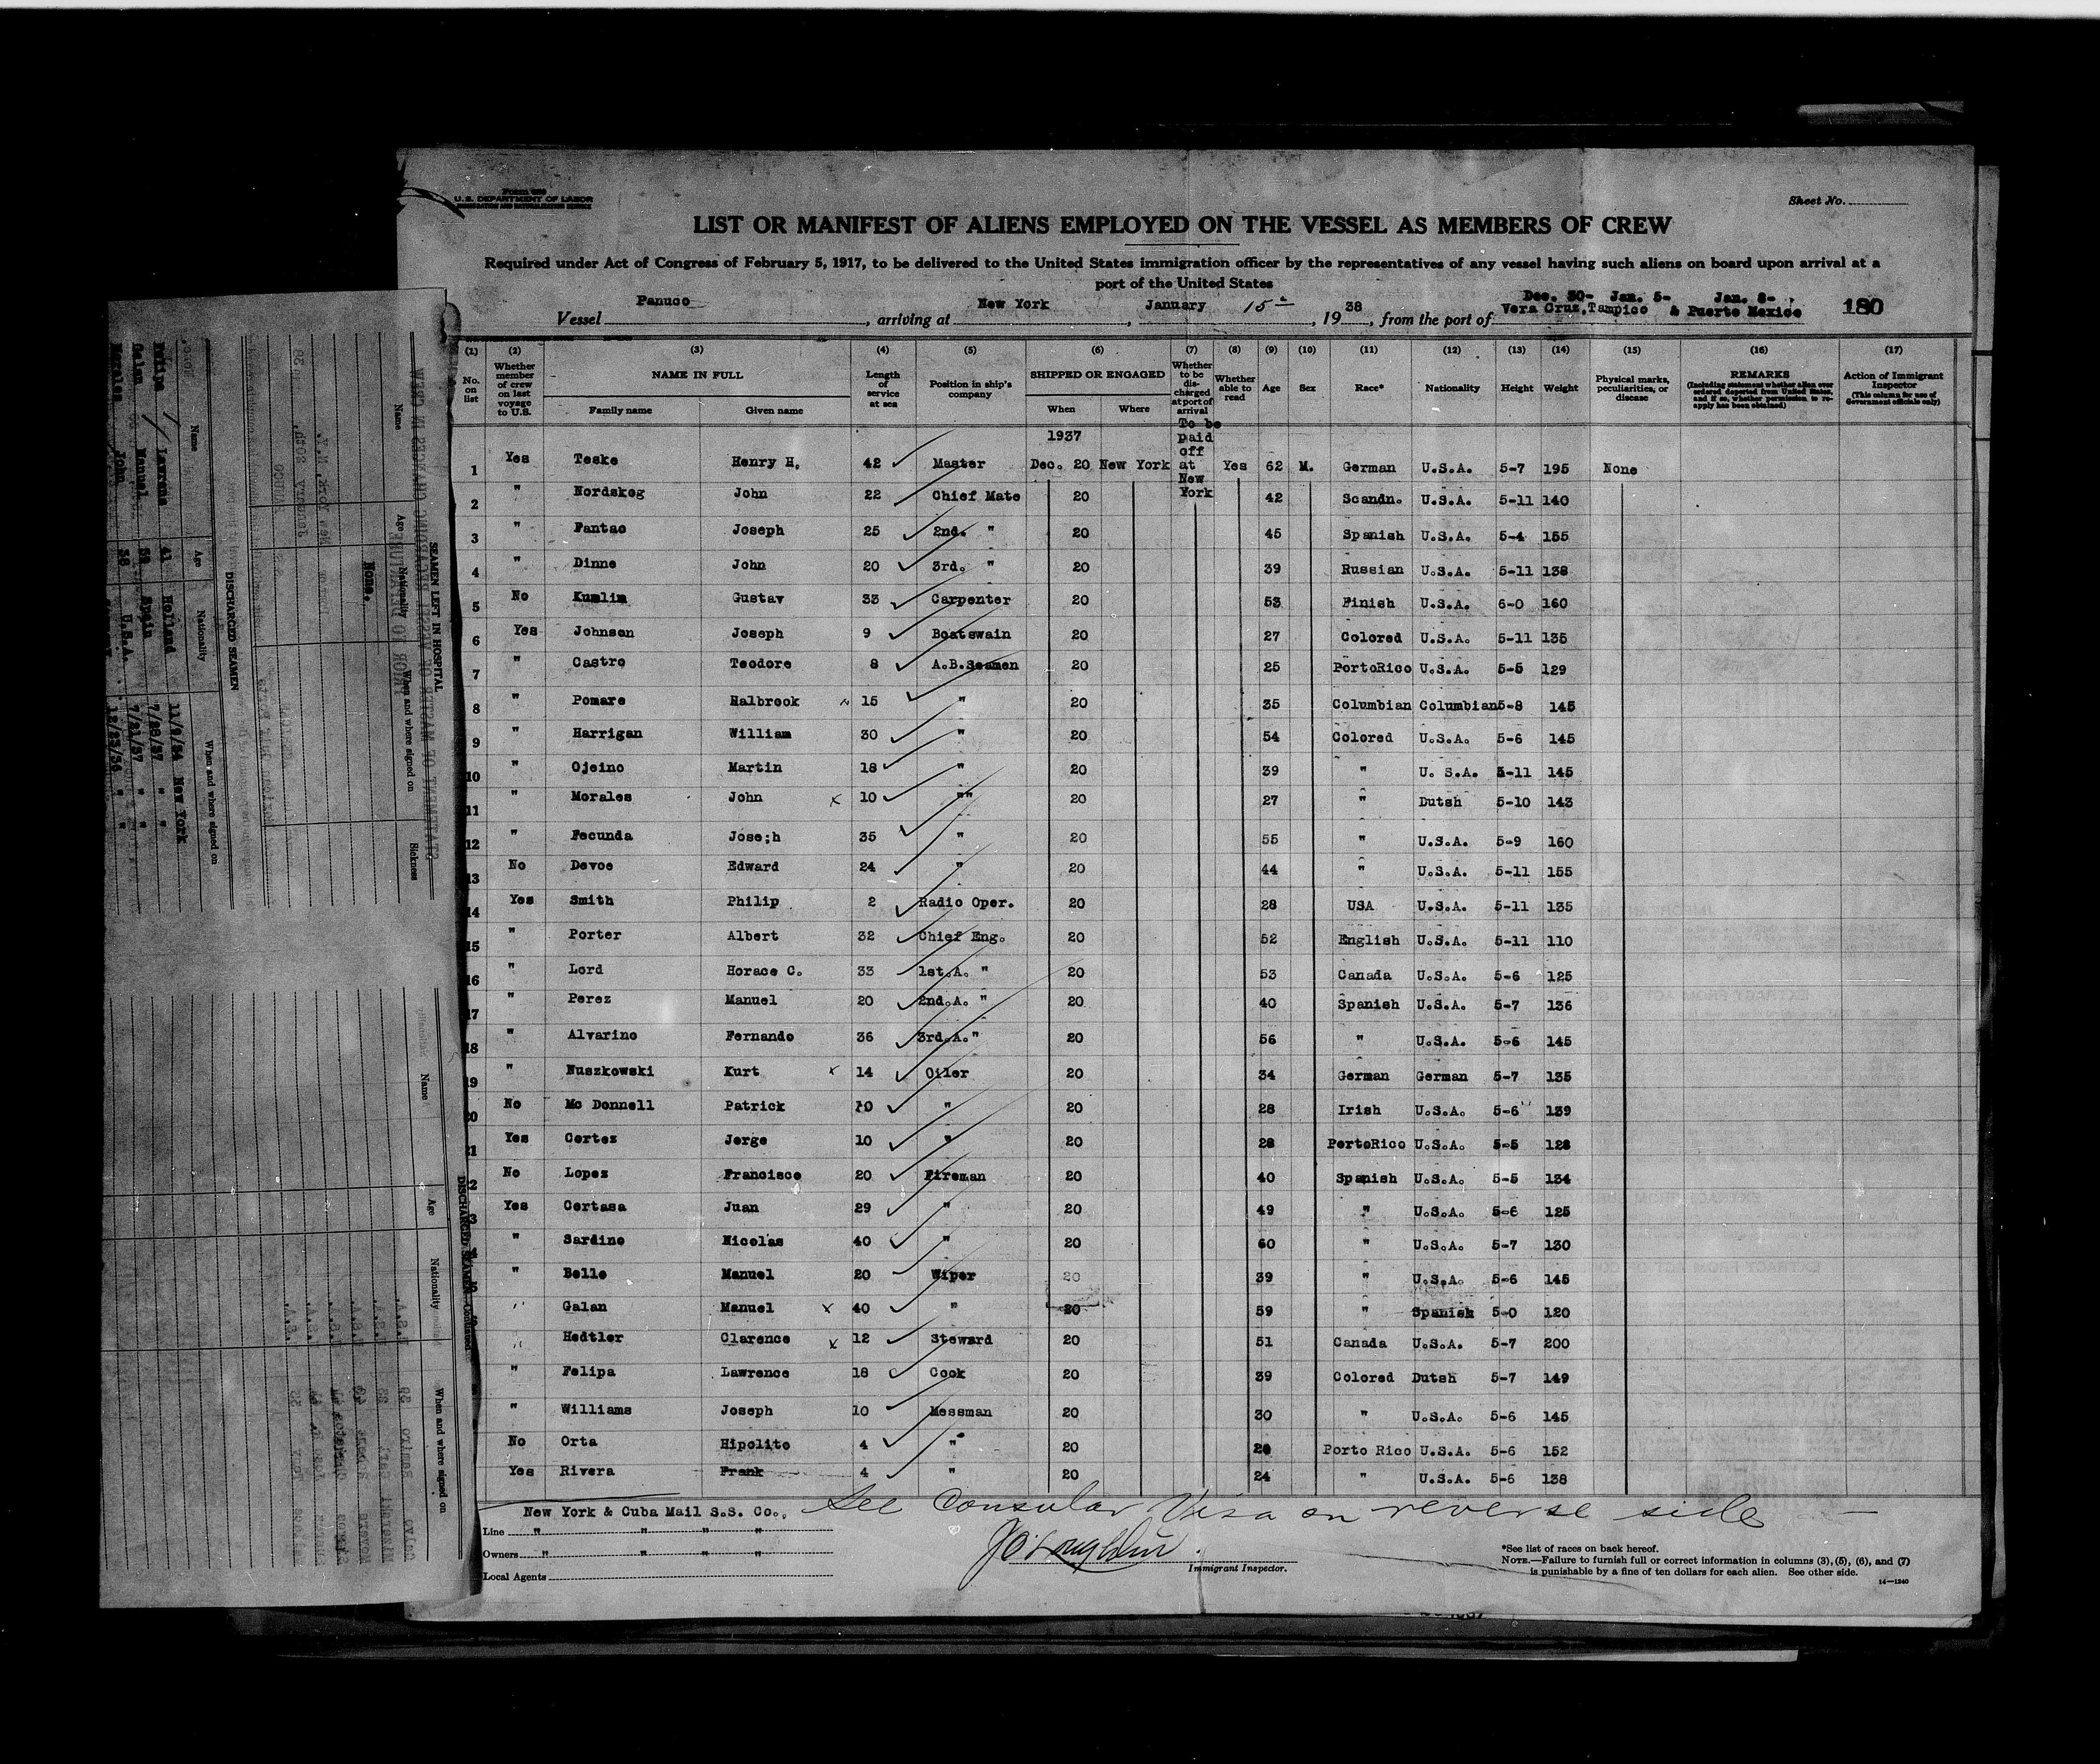 Form 689
U.S. DEPARTMENT OF LABOR
IMMIGRATION AND NATURALIZATION SERVICE
Sheet No.
LIST OR MANIFEST OF ALIENS EMPLOYED ON THE VESSEL AS MEMBERS OF CREW
Required under Act of Congress of February 5, 1917, to be delivered to the United States immigration officer by the representatives of any vessel having such aliens on board upon arrival at a
port of the United States
Dec. 30- Jan. 5- Jan. 8-
Vessel Panuco, arriving at New York, January 15, 1938, from the port of Vera Cruz, Tampico & Puerto Mexico 180
(1) (2) (3) (4) (5) (6) (7) (8) (9) (10) (11) (12) (13) (14) (15) (16) (17)
No. on list
Whether member of crew on last voyage to U.S.
NAME IN FULL
Family name Given name
Length of service at sea
Position in ship's company
SHIPPED OR ENGAGED
When Where
Whether to be discharged at port of arrival
Whether able to read
Age Sex Race* Nationality Height Weight
Physical marks, peculiarities, or disease
REMARKS
(Including statement whether alien ever ordered deported from United States, and if so, whether permission to reapply has been obtained)
Action of Immigrant Inspector
(This column for use of Government officials only)
1937
To be paid off at New York
1 Yes Teske Henry H. 42 Master Dec. 20 New York Yes 62 M. German U.S.A. 5-7 195 None
2 " Nordskog John 22 Chief Mate 20 42 Scandn. U.S.A. 5-11 140
3 " Pantac Joseph 25 2nd. " 20 45 Spanish U.S.A. 5-4 155
4 " Dinne John 20 3rd. " 20 39 Russian U.S.A. 5-11 138
5 No Kumlin Gustav 33 Carpenter 20 53 Finish U.S.A. 6-0 160
6 Yes Johnson Joseph 9 Boatswain 20 27 Colored U.S.A. 5-11 135
7 " Castro Teodore 8 A.B.Seamen 20 25 PortoRico U.S.A. 5-5 129
8 " Pomare Halbrook 15 " 20 35 Columbian Columbian 5-8 145
9 " Harrigan William 30 " 20 54 Colored U.S.A. 5-6 145
10 " Ojeino Martin 18 " 20 39 " U. S.A. 5-11 145
11 " Morales John x 10 "" 20 27 " Dutsh 5-10 143
12 " Fecunda Jose;h 35 " 20 55 " U.S.A. 5-9 160
13 No Devoe Edward 24 " 20 44 " U.S.A. 5-11 155
14 Yes Smith Philip 2 Radio Oper. 20 28 USA U.S.A. 5-11 135
15 " Porter Albert 32 Chief Eng. 20 52 English U.S.A. 5-11 110
16 " Lord Horace C. 33 1st.A. " 20 53 Canada U.S.A. 5-6 125
17 " Perez Manuel 20 2nd.A. " 20 40 Spanish U.S.A. 5-7 136
18 " Alvarino Fernando 36 3rd.A." 20 56 " U.S.A. 5-6 145
19 " Nuszkowski Kurt x 14 Oiler 20 34 German German 5-7 135
20 No Mc Donnell Patrick 10 " 20 28 Irish U.S.A. 5-6 139
21 Yes Cortez Jorge 10 " 20 28 PortoRico U.S.A. 5-5 128
2 No Lopez Francisco 20 Fireman 20 40 Spanish U.S.A. 5-5 134
3 Yes Cortasa Juan 29 " 20 49 " U.S.A. 5-6 125
4 " Sardino Nicolas 40 " 20 60 " U.S.A. 5-7 130
" Bello Manuel 20 Wiper 20 39 " U.S.A. 5-6 145
" Galan Manuel x 40 " 20 59 " Spanish 5-0 120
" Hedtler Clarence x 12 Steward 20 51 Canada U.S.A. 5-7 200
" Felipa Lawrence 18 Cook 20 39 Colored Dutsh 5-7 149
" Williams Joseph 10 Messman 20 30 " U.S.A. 5-6 145
No Orta Hipolito 4 " 20 Porto Rico U.S.A. 5-6 152
Yes Rivera Frank 4 " 20 24 " U.S.A. 5-6 138
See Consular Visa on reverse side
New York & Cuba Mail S.S. Co.,
Line " " " "
Owners " " " "
Local Agents
Immigrant Inspector.
*See list of races on back hereof.
NOTE.—Failure to furnish full or correct information in columns (3), (5), (6), and (7)
is punishable by a fine of ten dollars for each alien. See other side.
14—1240
SEAMEN LEFT IN HOSPITAL
Name Age Nationality When and where signed on Sickness
None.
DISCHARGED SEAMEN
Name Age Nationality When and where signed on
Felipa Lawrens 41 Holland 11/9/34 New York
Galan Manuel 59 Spain 7/8/37 " "
7/21/37 " "
Morales John 38 U.S.A. 12/23/36 " "
DISCHARGED SEAMEN—Continued
Name Age Nationality When and where signed on